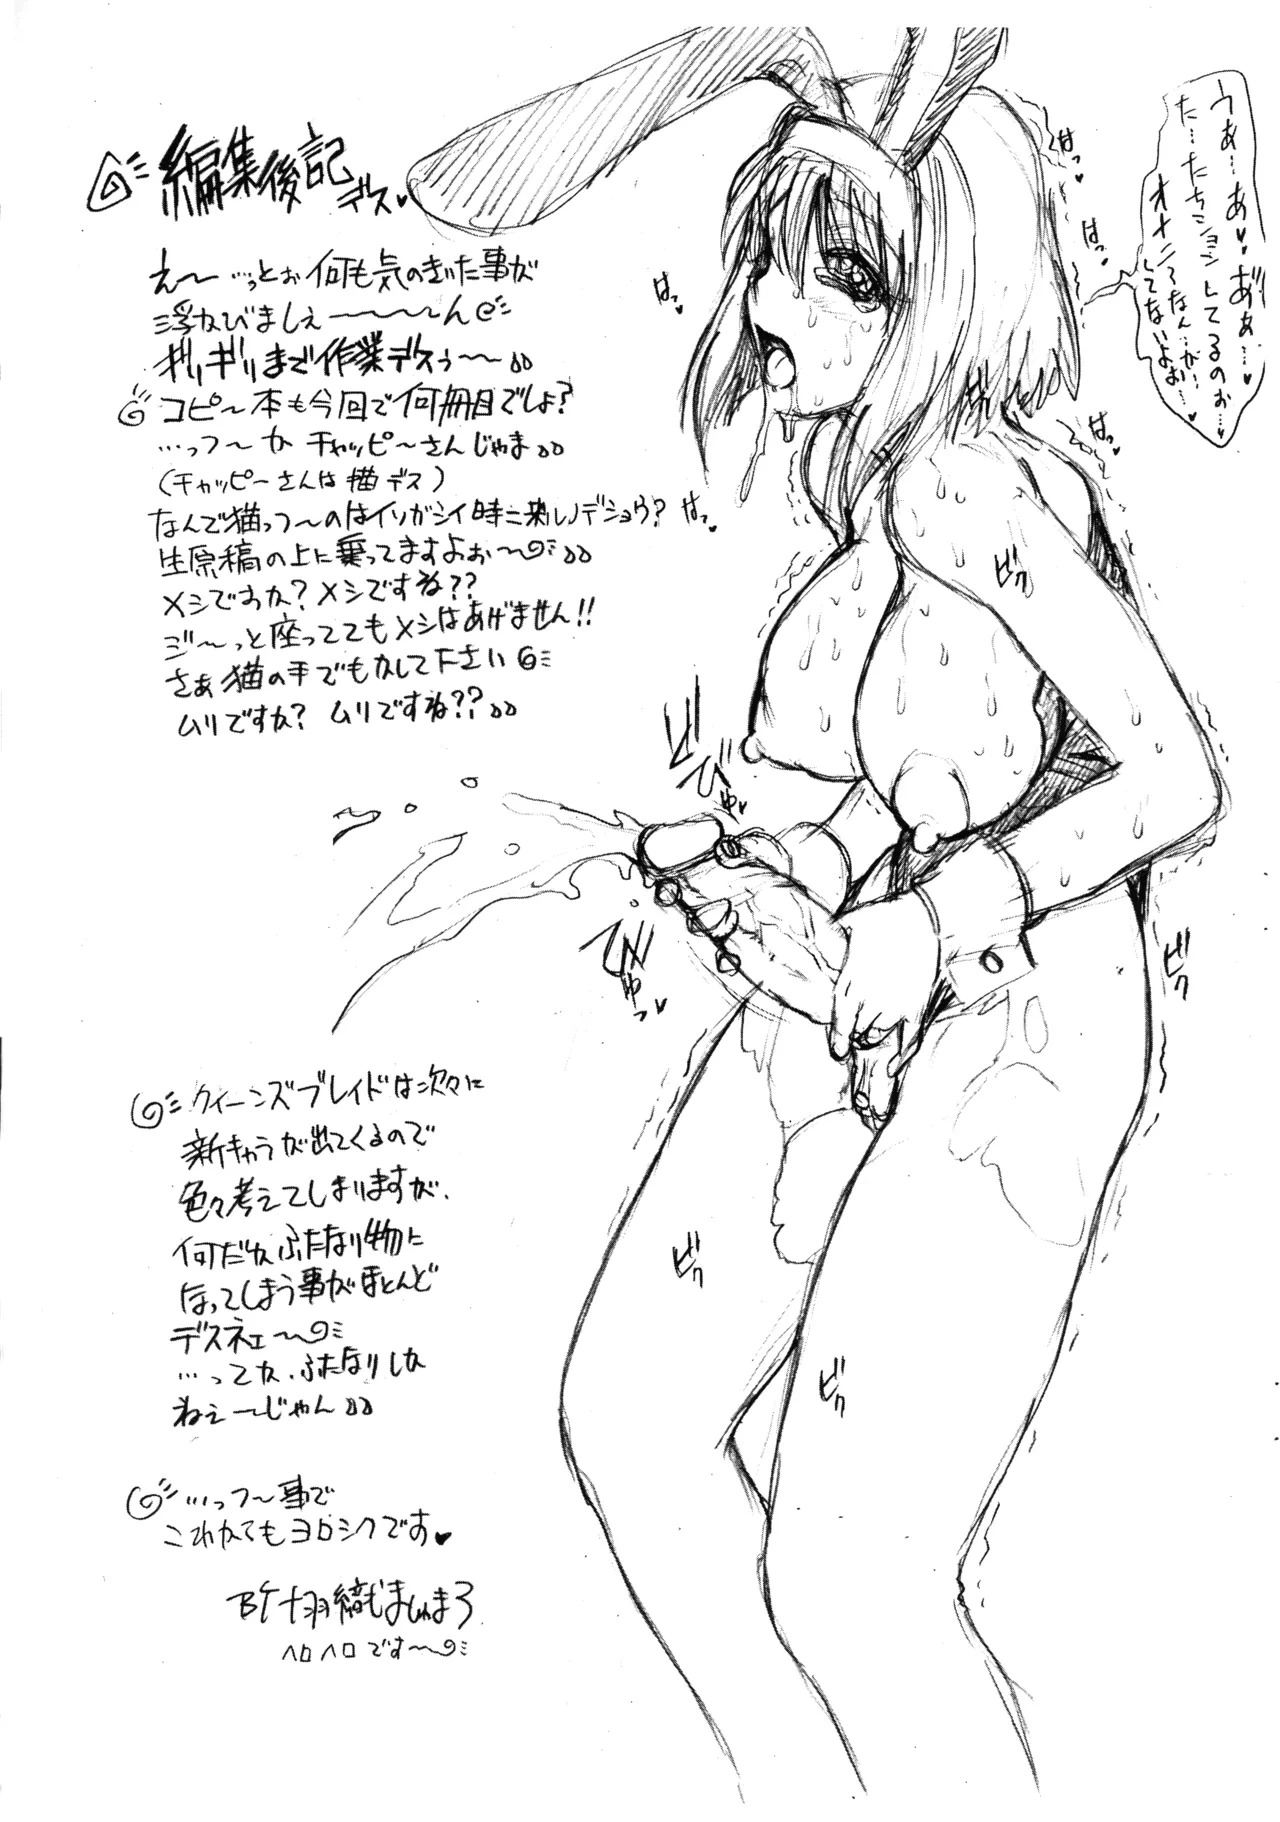 編集後記デス♥
え〜…っとぉ何も気のきいた事が
浮かびましぇ〜〜〜〜ん
ギリギリまで作業デスぅ〜〜
コピ〜本も今回で何冊目でしょ?
…っつ〜か チャッピ〜さんじゃま
(チャッピ〜さんは猫デス)
なんで猫っつ〜のはイソガシイ時ニ来ルノデショウ?
生原稿の上に乗ってますよぉ〜
メシですか?メシですね??
ジ〜っと座っててもメシはあげません!!
さぁ猫の手でもかして下さい
ムリですか? ムリですね??
クイーンズブレイドは次々に
新キャラが出てくるので
色々考えてしまりますが、
何だかふたなり物に
なってしまう事がほとんど
デスネェ〜
…ってか、ふたなりしか
ねぇ〜じゃん
…っつ〜事で
これかてもヨロシクです♥
BY 羽織ましゅまろ
ヘロヘロです〜
うぁ…あ♥あぁ…♥
た…たちションしてるのぉ…♥
オナニーなん…が…
してないよぉ…♥
はっ♥
はっ♥
はっ♥
はっ♥
はっ♥
ビク
ビク
ビク
ビク
ビク